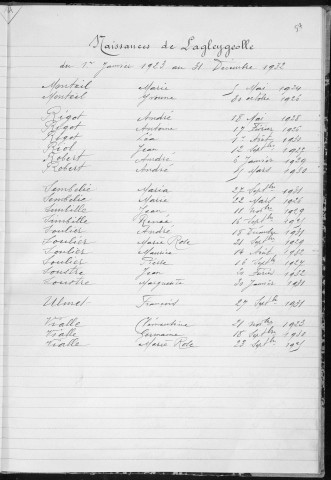 Naissances de Lagleygeolle
du 1er Janvier 1923 au 31 Décembre 1932
Monteil Marie Mai 1924
Monteil Yvonne 31 octobre 1926
Rigot André 18 Mai 1928
Rigot Antoine 17 Février 1926
Rigot Léa 1926
Riol Jean 12 Septbre
Robert André 6 Janvier 1929
Robert André Mars 1930
Sembelie Maria 27 Septbre 1931
Sembelie Marie 22 Mars 1926
Sembille Jean 1929
Sembille 16 Septbre 1931
Soulier André 1931
Soulier Marie Rose 21 Septbre 1929
Soulier Maurice 14 1932
Soulier 16 Septbre 1927
Soustre Jean 20 Février 1932
Soustre Marguerite 30 Janvier 1931
Ulmet François 27 Septbre 1931
Vialle Clémentine 21 Novbre 1923
Vialle Germaine 18 Septbre 1930
Vialle Marie Rose 23 Septbre